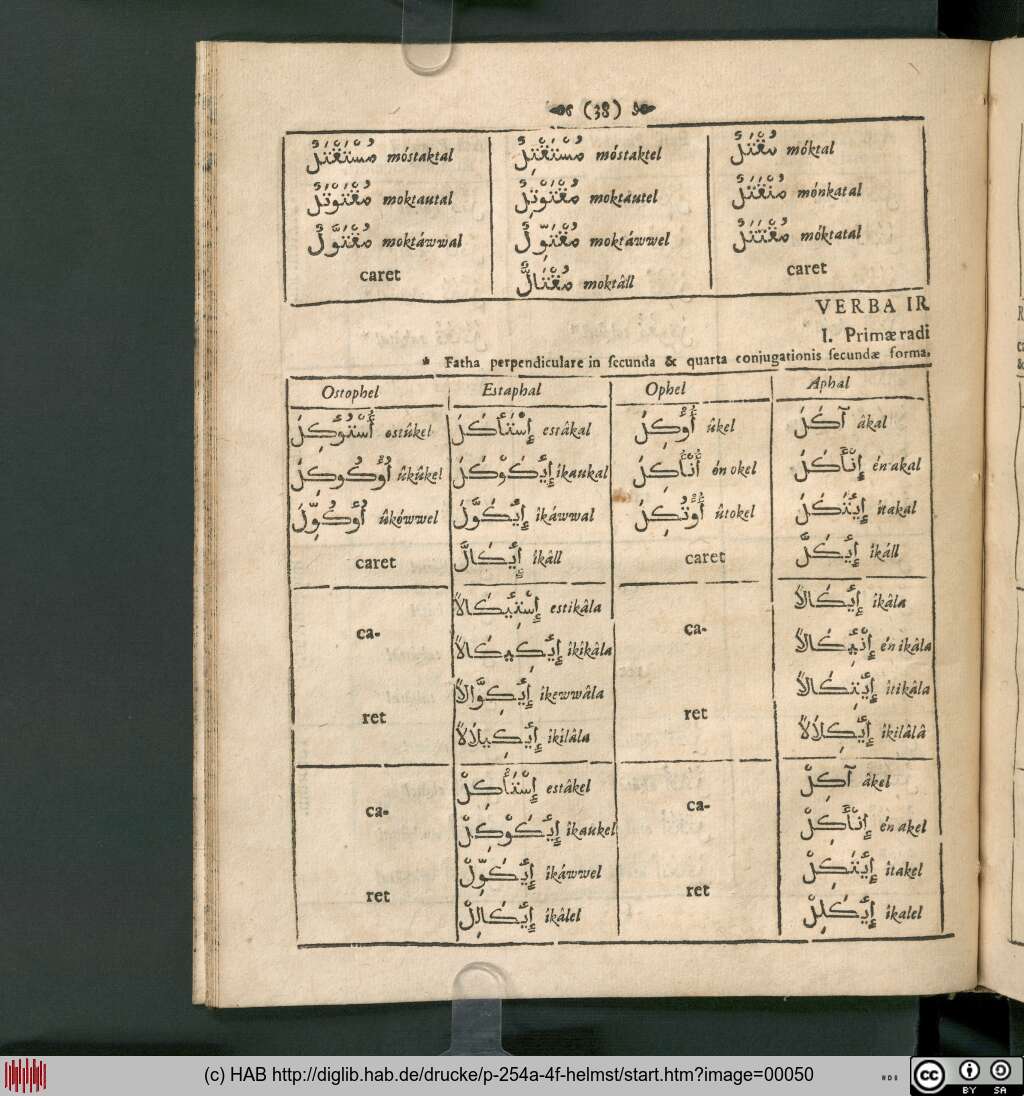 (38)
مُسْتَقْتَلٌ móstaktal مُسْتَقْتِلٌ móstaktel مُقْتَلٌ móktal
مُقْتَوْتَلٌ moktautal مُقْتَوْتِلٌ moktautel مُنْقَتَلٌ mónkatal
مُقْتَوَّلٌ moktáwwal مُقْتَوِّلٌ moktáwwel مُقْتَتَلٌ móktatal
caret مُقْتَالٌّ moktâll caret
VERBA IR
I. Primæ radi
* Fatha perpendiculare in secunda & quarta conjugationis secundæ forma,
Ostophel Estaphal Ophel Aphal
أُسْتُوكِلَ ostûkel إِسْتَأْكَلَ estâkal أُوكِلَ ûkel آكَلَ âkal
أُوكُوكِلَ ûkûkel إِيكَوْكَلَ îkaukal أُنْأُكِلَ ón okel إِنْأَكَلَ én akal
أُوكُوِّلَ ûkówwel إِيكَوَّلَ îkáwwal أُوتُكِلَ ûtokel إِيتَكَلَ îtakal
caret إِيكَالَّ îkâll caret إِيكَلَّ îkáll
ca- إِسْتِيكَالًا estikâla ca- إِيكَالًا îkâla
إِيكِيكَالًا îkîkâla إِنْئِكَالًا én ikâla
ret إِيكِوَّالًا îkewwâla ret إِيتِكَالًا îtikâla
إِيكِيلَالًا îkîlâla إِيكِلَالًا îkilâlâ
ca- إِسْتَأْكِلْ estâkel ca- آكِلْ âkel
إِيكَوْكِلْ îkaukel إِنْأَكِلْ én akel
ret إِيكَوِّلْ îkáwwel ret إِيتَكِلْ îtakel
إِيكَالِلْ îkâlel إِيكَلِلْ îkalel
(c) HAB http://diglib.hab.de/drucke/p-254a-4f-helmst/start.htm?image=00050
cc BY SA